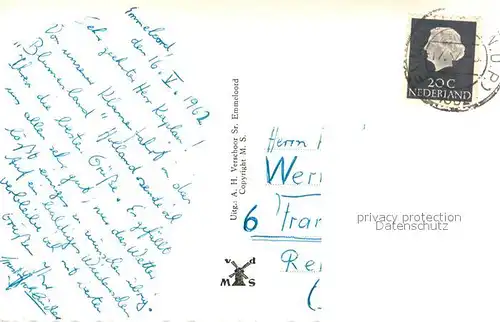 Emmeloord
den 16. V. 1962
Sehr geehrter Herr Kaplan!
Von unserer kleinen Fahrt in das
"Blumenland" Holland sende ich
Ihnen die besten Grüße. Es gefällt
uns allen sehr gut, nur das Wetter
läßt einiges zu wünschen übrig.
Auf ein baldiges Wiedersehen
verbleibe ich mit
Grüßen Ihre
Uitg.: A. H. Verschoor Sr. Emmeloord
Copyright M. S.
v d
M S
20 C
NEDERLAND
Herrn
Wer
6 Fran
Re
privacy protection
Datenschutz